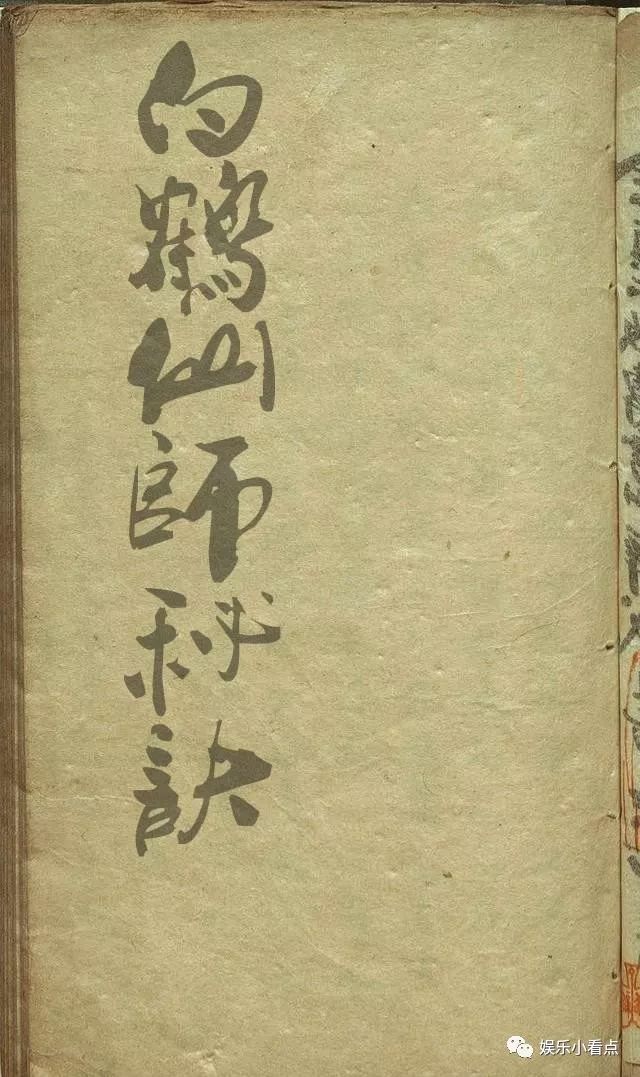 白鶴仙師秘訣
娱乐小看点